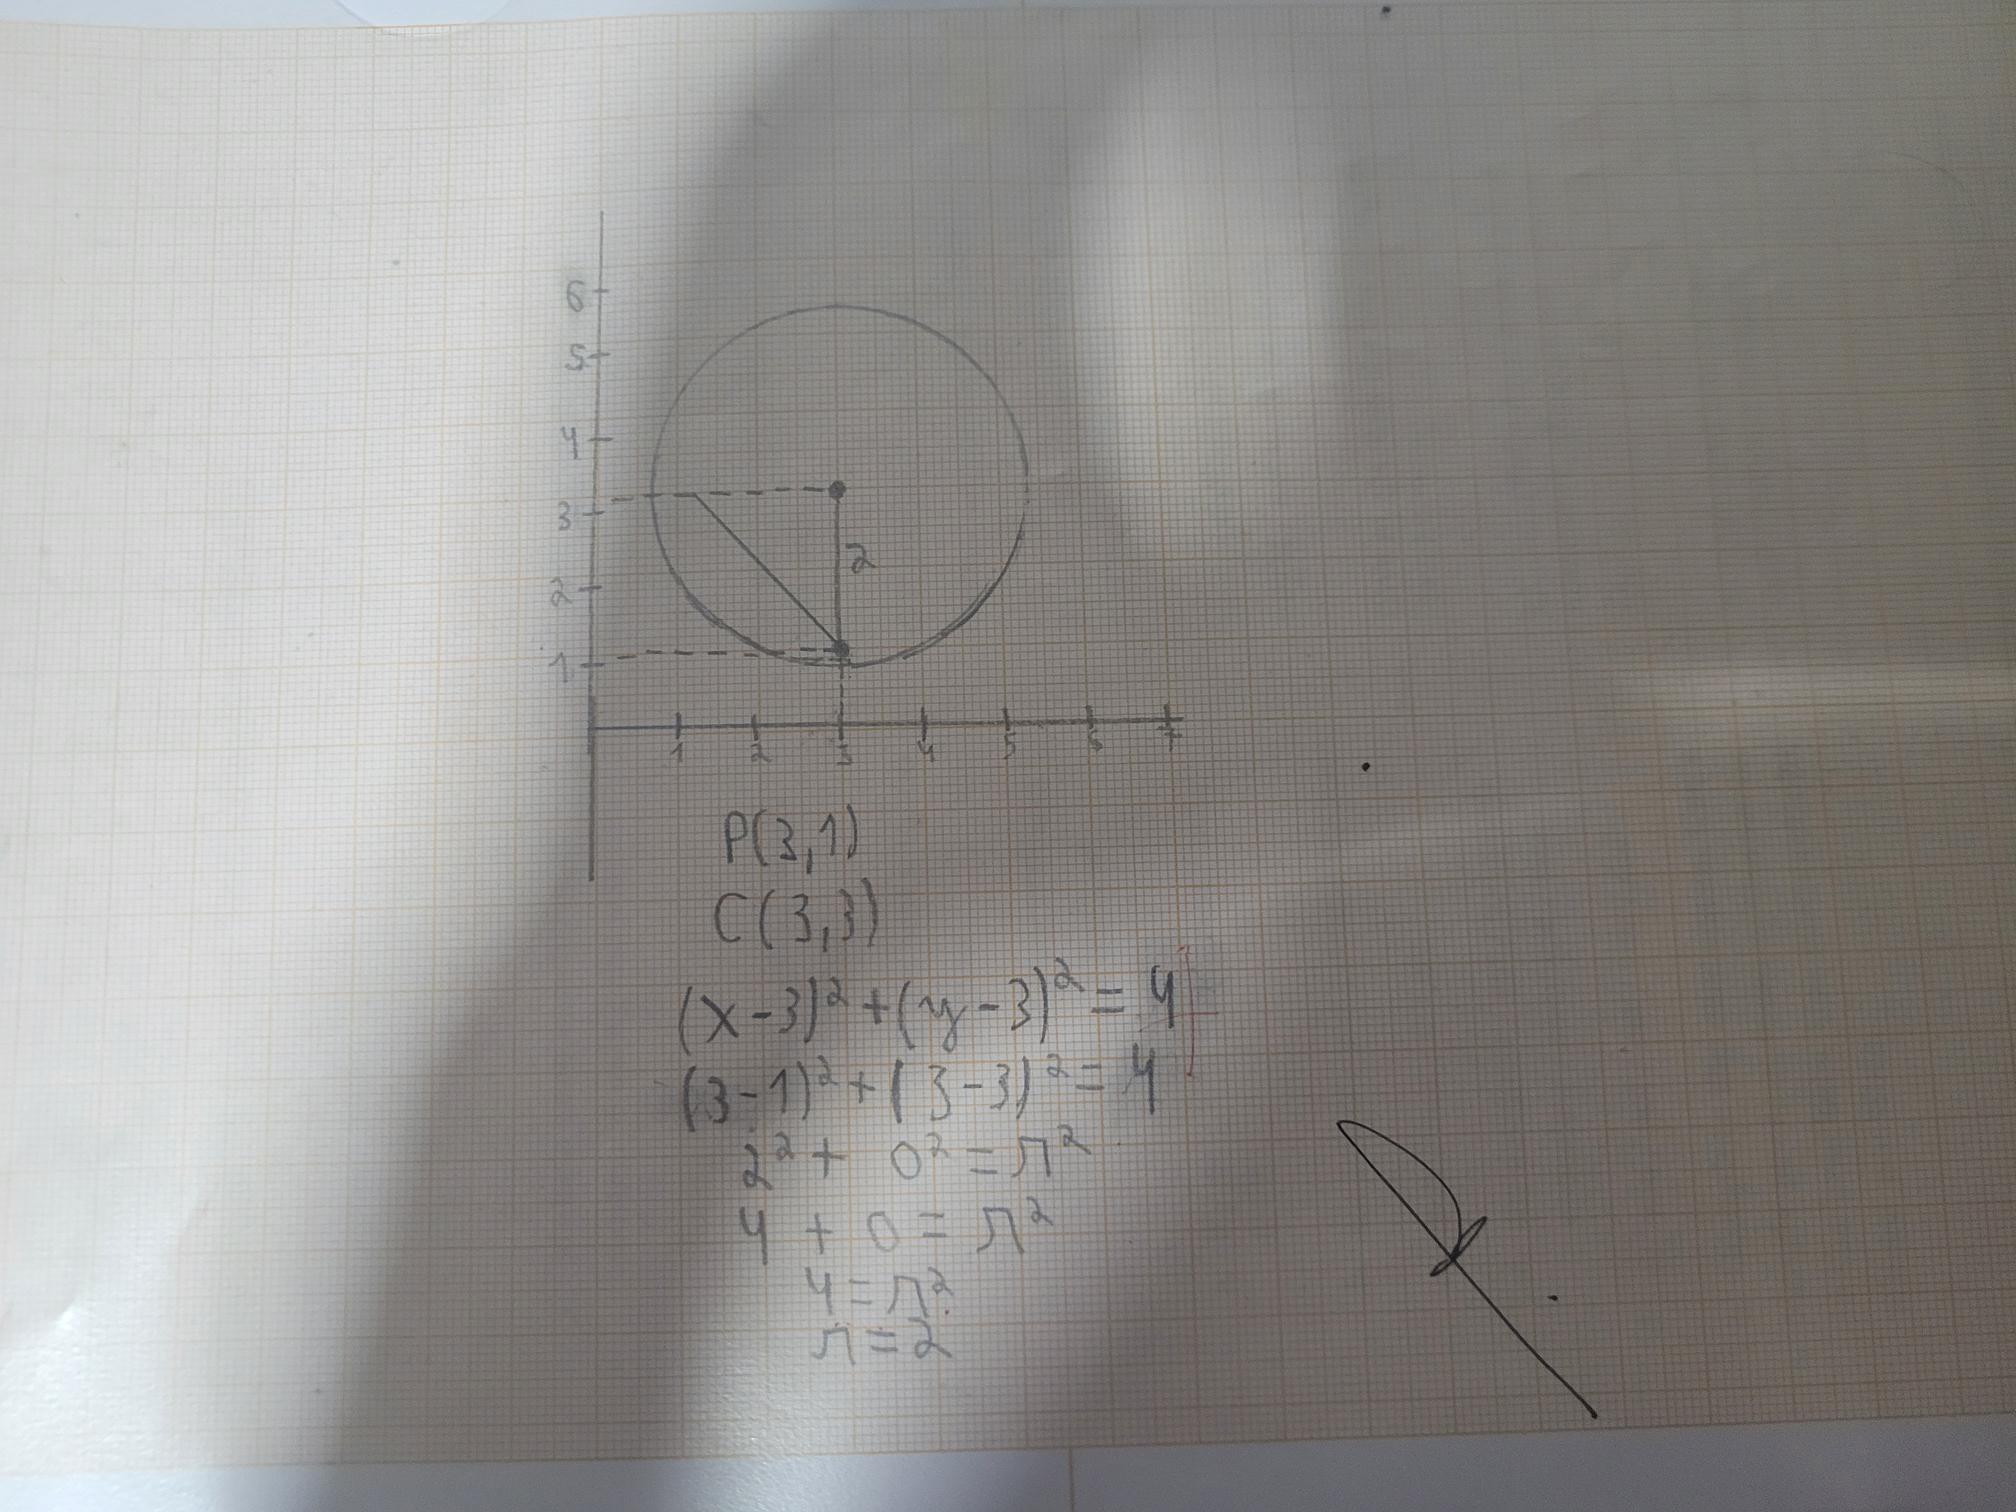 6
5
4
3
2
1
2
1 2 3 4 5 6 7
P(3,1)
C(3,3)
(x-3)² + (y-3)² = 4
(3-1)² + (3-3)² = 4
2² + 0² = r²
4 + 0 = r²
4 = r²
r = 2